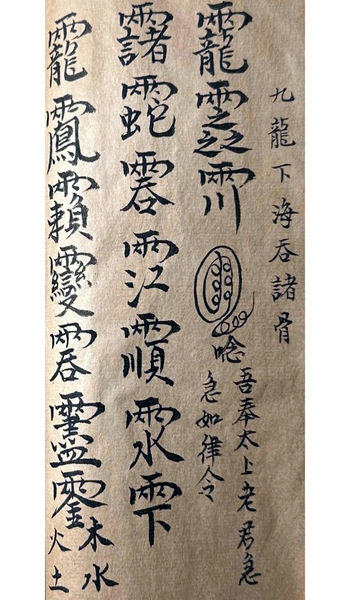 九龍下海吞諸骨
靇⿱雨⿱之⿰之之⿱雨川
唸
吾奉太上老君急
急如律令
⿱雨諸⿱雨蛇⿱雨吞⿱雨江⿱雨順⿱雨水⿱雨下
靇⿱雨鳳⿱雨賴⿱雨變⿱雨吞⿱雨金
木水
火土